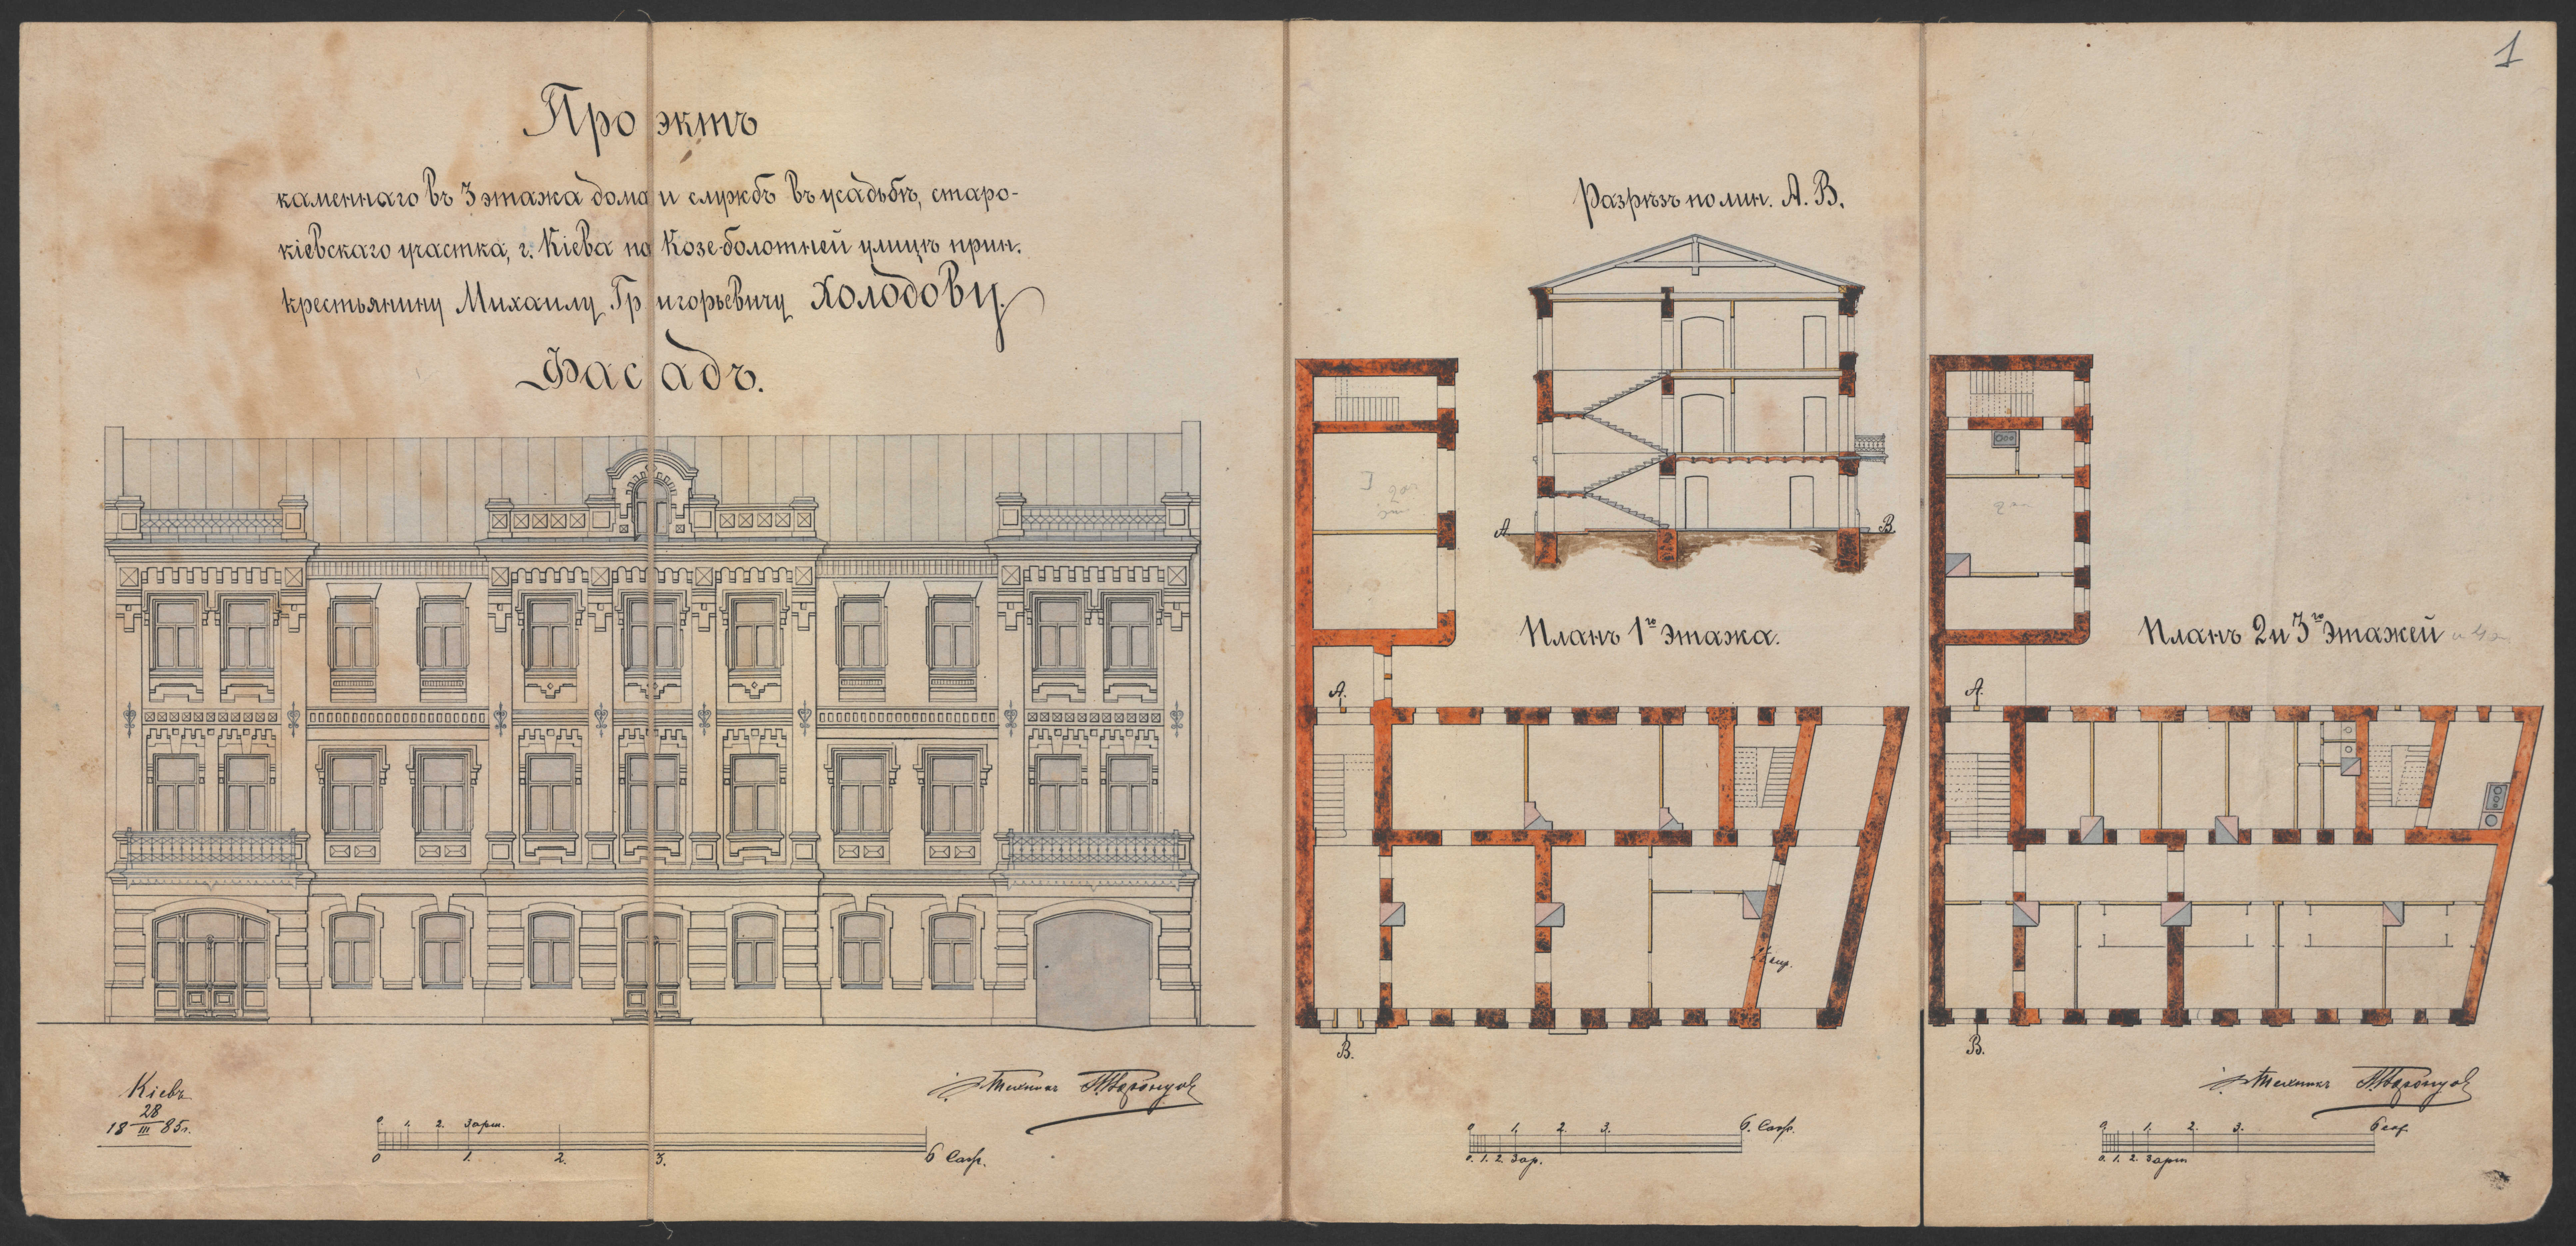 1
Проэктъ
каменнаго въ 3 этажа дома и службъ въ усадьбѣ, старо-
кіевскаго участка, г. Кіева по Козе-болотней улицѣ прин.
крестьянину Михаилу Григорьевичу Холодову.
Фасадъ.
Кіевъ
28
18 III 85 г.
0. 1. 2. 3 арш.
0 1. 2. 3. 6 Саж.
Техникъ
Разрѣзъ по лин. А. В.
А. В.
Планъ 1го этажа.
А.
В.
0 1. 2. 3. 6. Саж.
0. 1. 2. 3 ар.
Планъ 2 и 3го этажей
А.
В.
Техникъ
0. 1. 2. 3. 6 саж
0. 1. 2. 3 арш